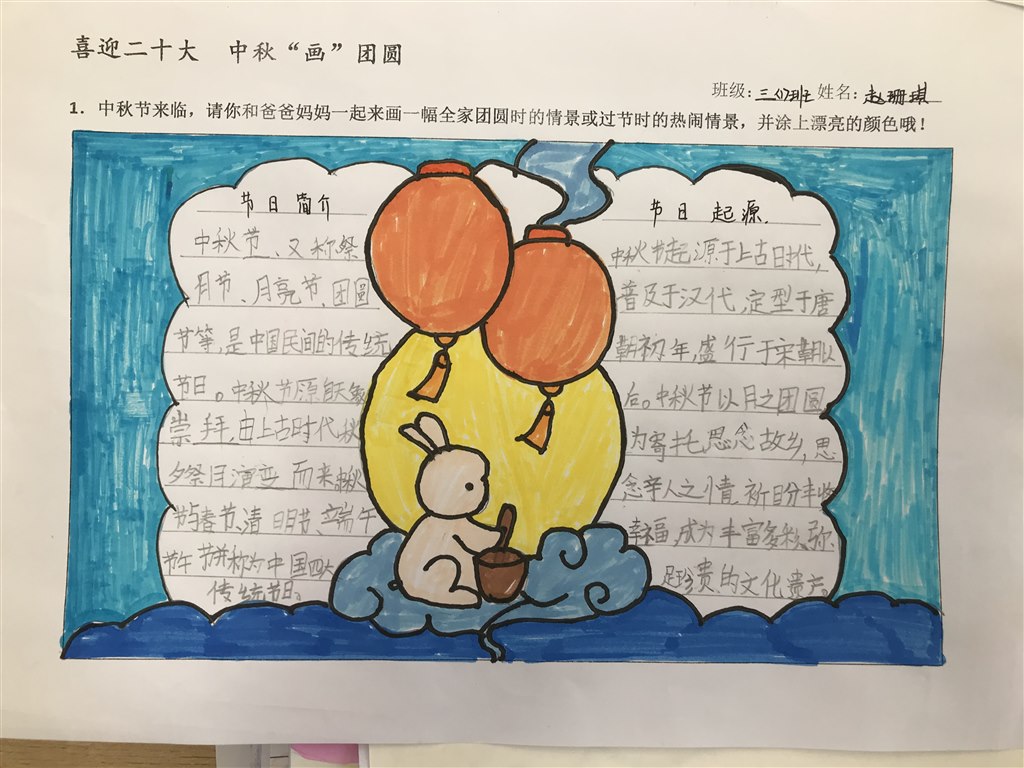 喜迎二十大 中秋“画”团圆
班级:三(7)班 姓名:赵珊琪
1. 中秋节来临，请你和爸爸妈妈一起来画一幅全家团圆时的情景或过节时的热闹情景，并涂上漂亮的颜色哦！
节日简介
中秋节、又称祭
月节、月亮节、团圆
节等,是中国民间的传统
节日。中秋节源自天象
崇拜,由上古时代秋
夕祭月演变而来中秋
节与春节、清明节、端午
节并称为中国四大
传统节日。
节日起源.
中秋节起源于上古时代,
普及于汉代,定型于唐
朝初年,盛行于宋朝以
后。中秋节以月之团圆
为寄托,思念故乡,思
念亲人之情,祈盼丰收
幸福,成为丰富多彩、弥
足珍贵的文化遗产。